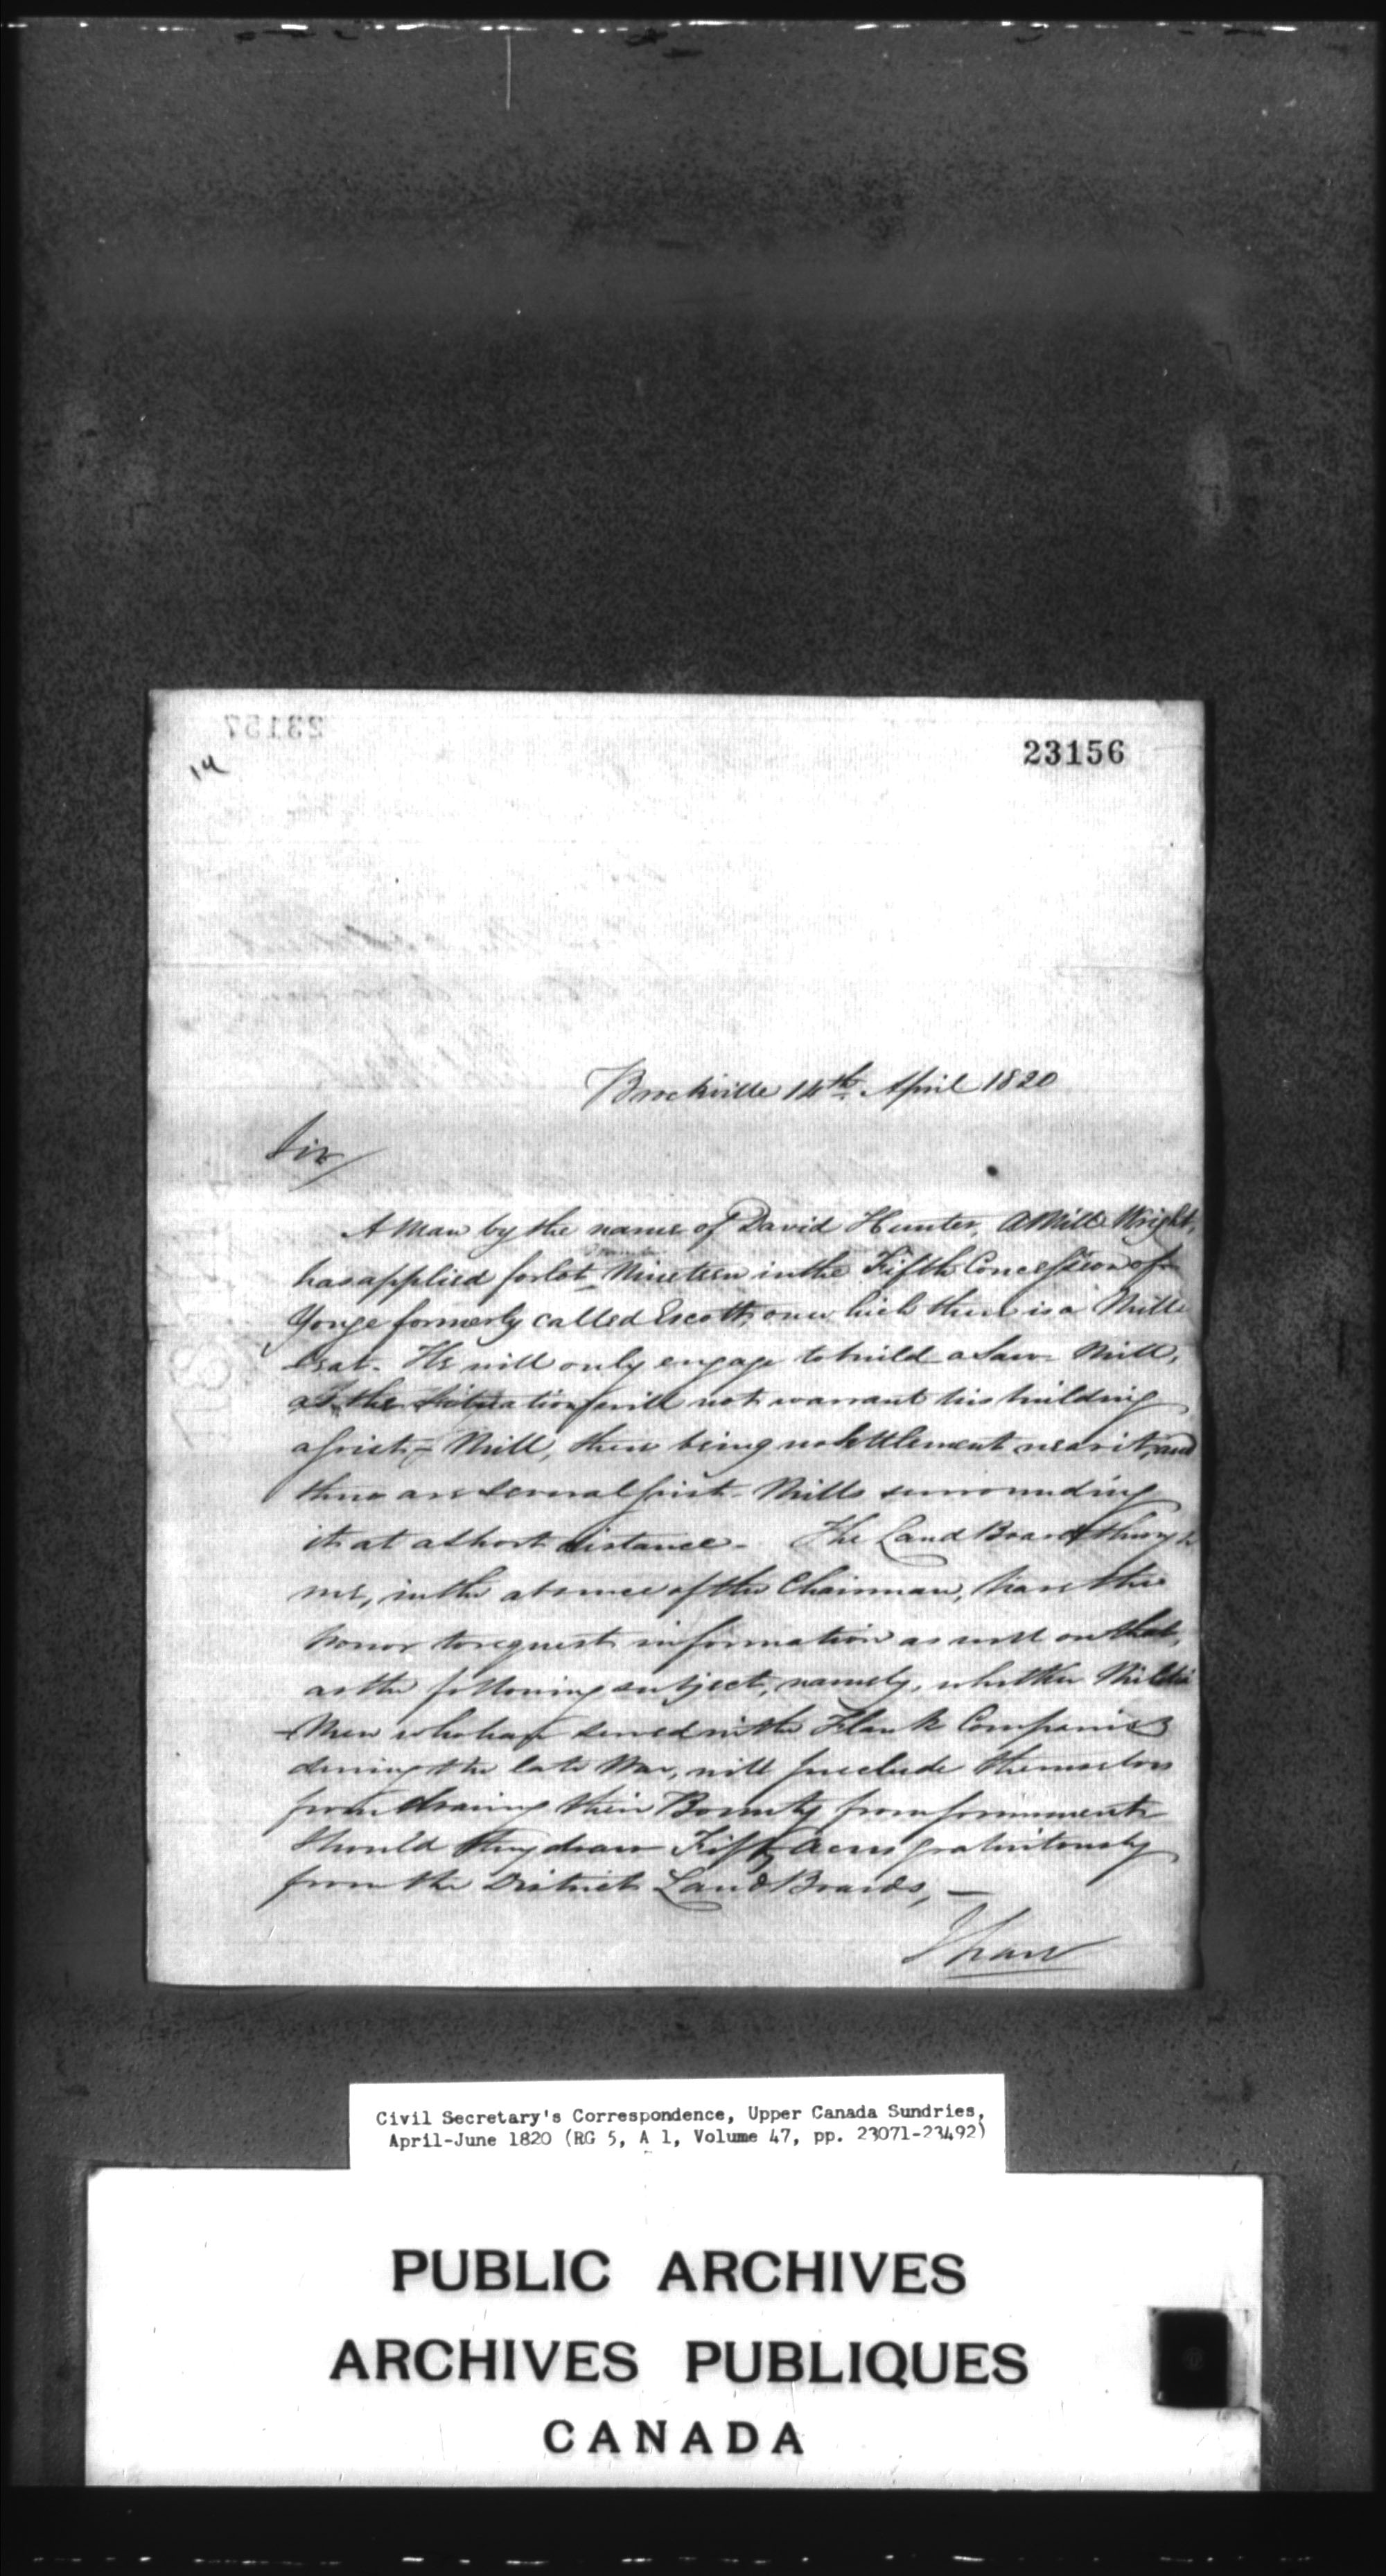 23157
14
23156
Brockville 14th. April 1820
Sir/
A Man by the name of David Hunter, a Mill Wright,
has applied for lot Number Nineteen in the Fifth Concession of
Yonge formerly called Escott, on which there is a Mill
Seat. He will only engage to build a Saw Mill,
as the Situation will not warrant his building
a Grist-Mill, there being no Settlement near it, and
there are several Grist-Mills surrounding
it at a short distance. The Land Board through
me, in the absence of the Chairman, have the
honor to request information as well on that,
as the following subject, namely, whether Militia
-Men who have served in the Flank Companies
during the late War, will preclude themselves
from drawing their Bounty from Government
Should they draw Fifty Acres gratuitously
from the District Land Boards, —
I have
Civil Secretary's Correspondence, Upper Canada Sundries,
April-June 1820 (RG 5, A 1, Volume 47, pp. 23071-23492)
PUBLIC ARCHIVES
ARCHIVES PUBLIQUES
CANADA